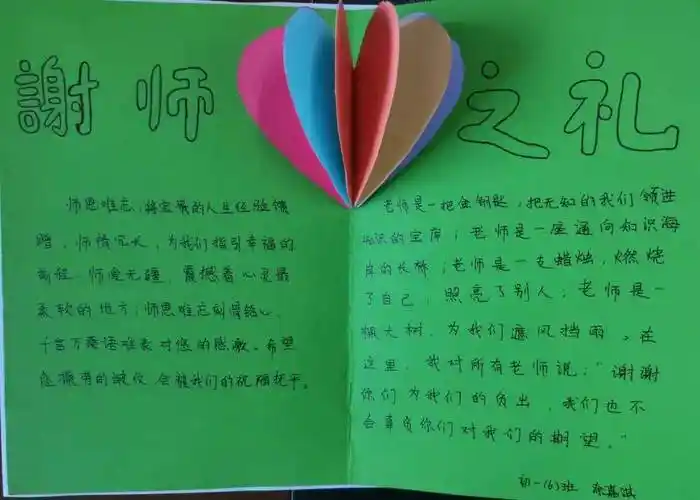 謝师 之礼
师恩难忘,将宝贵的人生经验馈
赠,师情冗长,为我们指引幸福的
前径,师爱无疆,震撼着心灵最
柔软的地方;师恩难忘刻骨铭心,
千言万语难表对您的感激。希望
您疲劳的皱纹会被我们的祝福抚平。
老师是一把金钥匙,把无知的我们领进
知识的宝库;老师是一座通向知识海
岸的长桥;老师是一支蜡烛,燃烧
了自己,照亮了别人;老师是一
棵大树,为我们遮风挡雨。在
这里,我对所有老师说:“谢谢
你们为我们的负出,我们也不
会辜负你们对我们的期望。”
初一(6)班